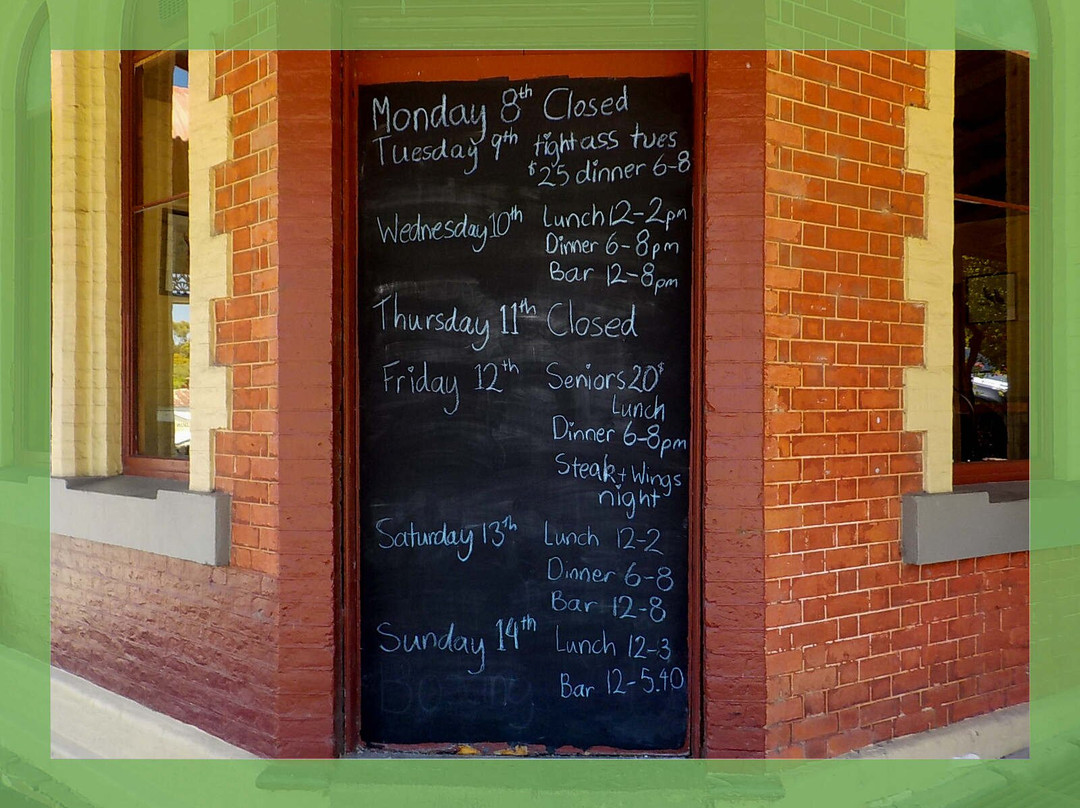 Monday 8th Closed
Tuesday 9th tightass tues
$25 dinner 6-8
Wednesday 10th Lunch 12-2pm
Dinner 6-8pm
Bar 12-8pm
Thursday 11th Closed
Friday 12th Seniors 20$
Lunch
Dinner 6-8pm
Steak + Wings
night
Saturday 13th Lunch 12-2
Dinner 6-8
Bar 12-8
Sunday 14th Lunch 12-3
Bar 12-5.40